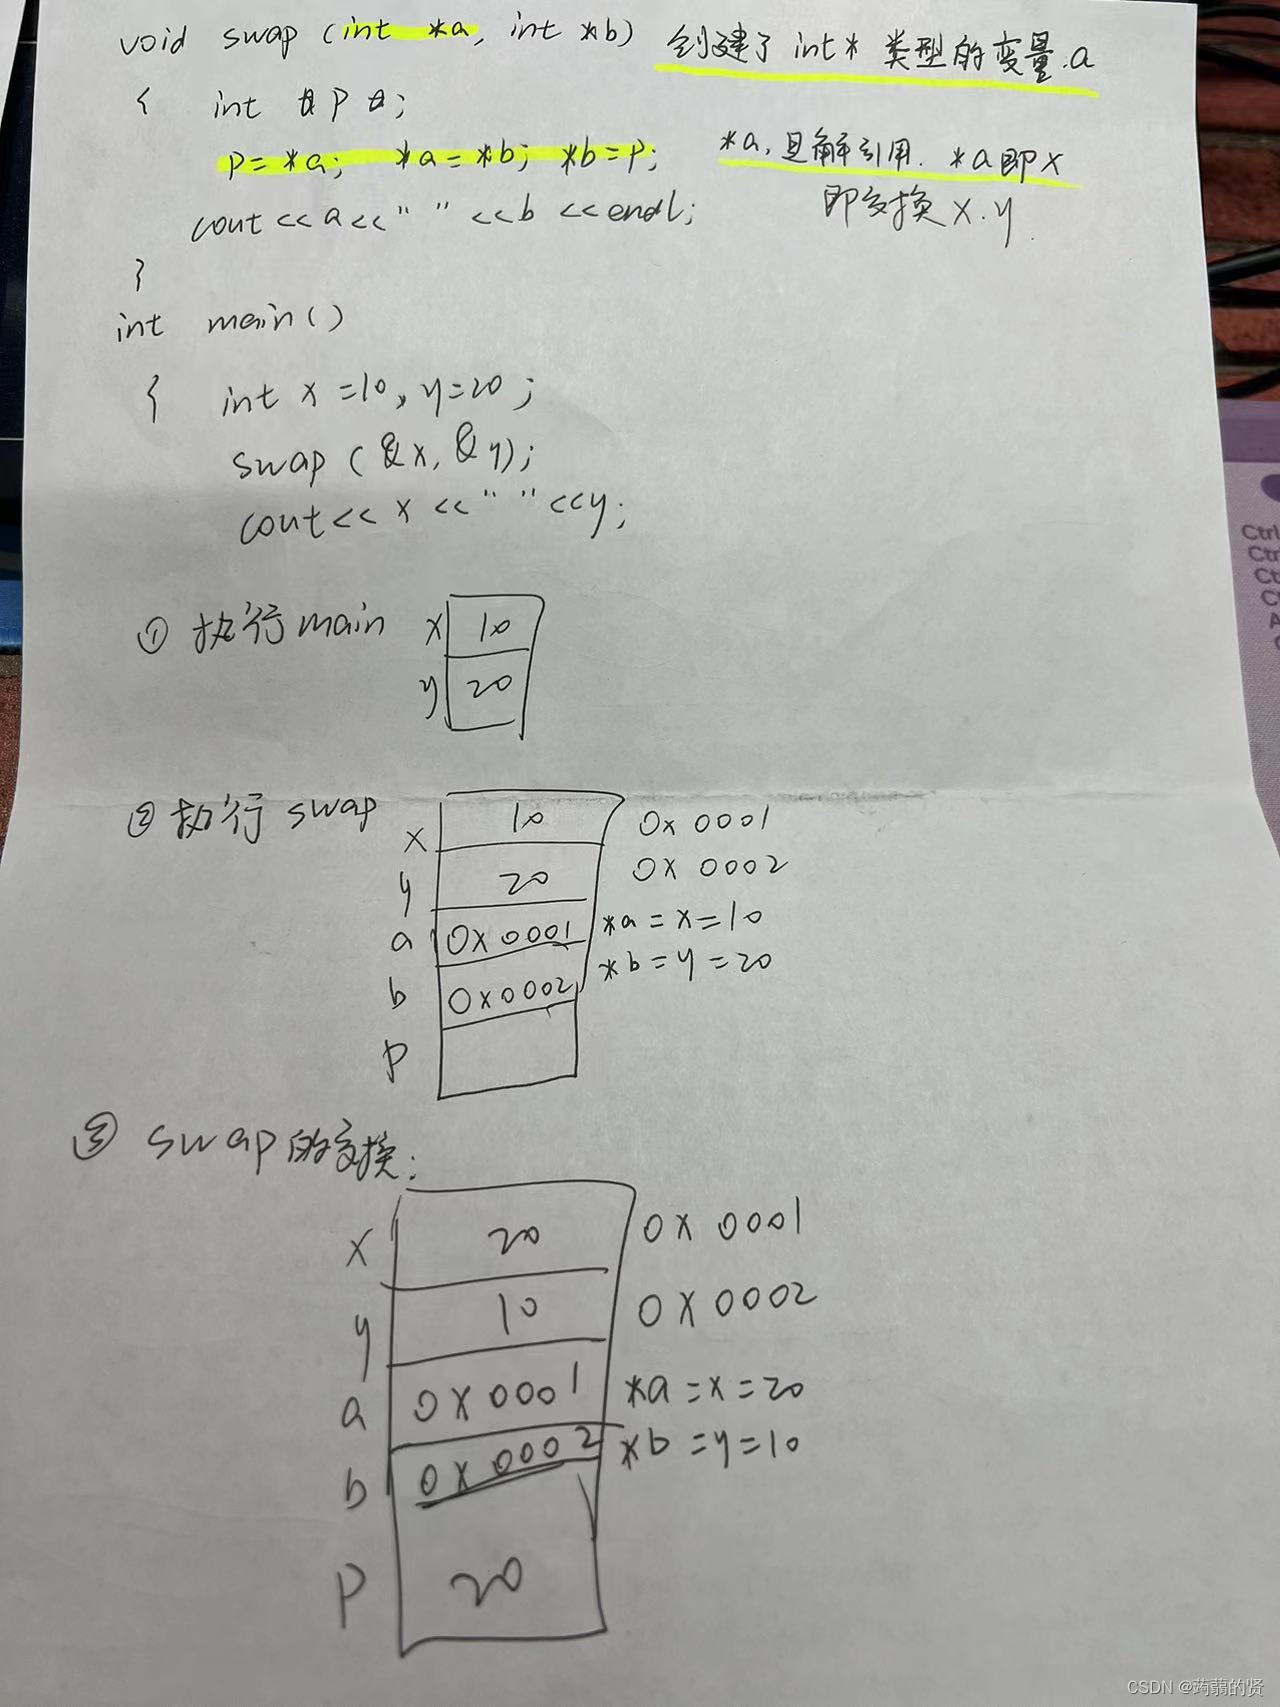 void swap (int *a, int *b) 创建了 int* 类型的变量.a
{ int p ;
p = *a; *a = *b; *b = p; *a, 且解引用. *a即x
cout << a << " " << b << endl; 即交换 x.y.
}
int main()
{ int x =10, y=20;
swap (&x, &y);
cout<< x << " " <<y;
① 执行main x 10
y 20
② 执行 swap
x 10 0x 0001
y 20 0x 0002
a 0x 0001 *a = x = 10
b 0x0002 *b = y = 20
p
③ swap的交换:
x 20 0x 0001
y 10 0x 0002
a 0x 0001 *a = x = 20
b 0x 0002 *b = y = 10
p 20
CSDN @蒟蒻的贤
Ctrl
Ct